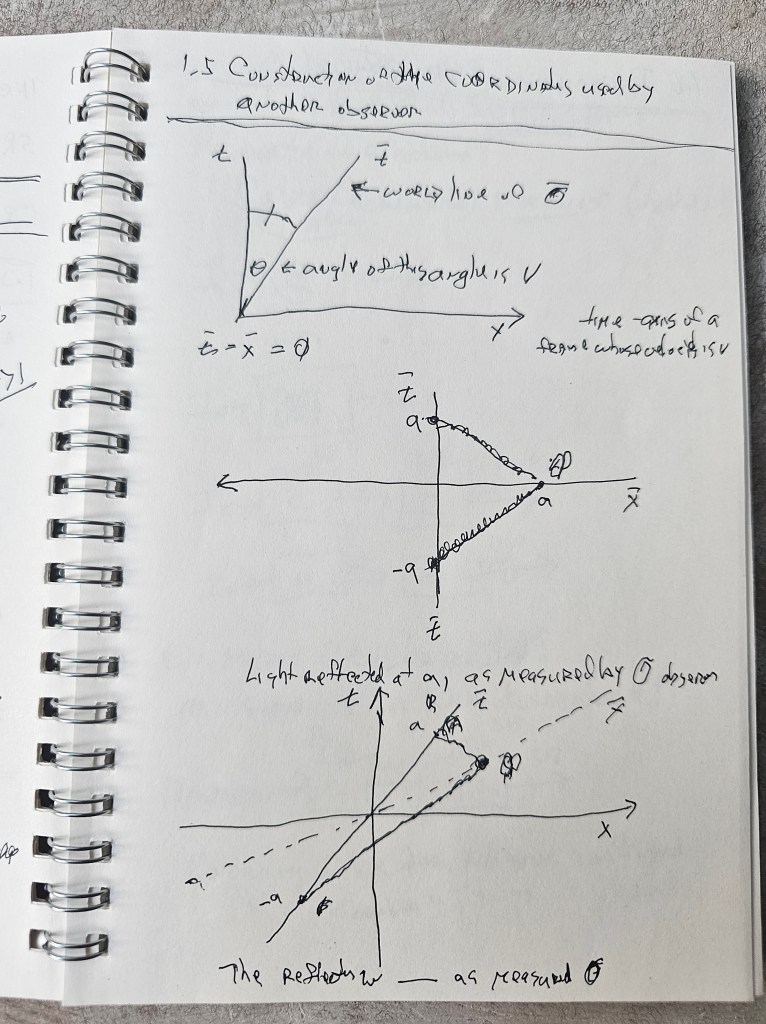 1.5 Construction of the COORDINATES used by
another observer
t
t̄
← world line of Ō
θ ← angle of this angle is V
x
time-axis of a
frame whose velocity is v
t̄ = x̄ = 0
t̄
a
P
a
x̄
-a
t̄
Light reflected at a, as measured by Ō observer
t
R
t̄
x̄
a
P
x
-a
E
The reflection — as measured O